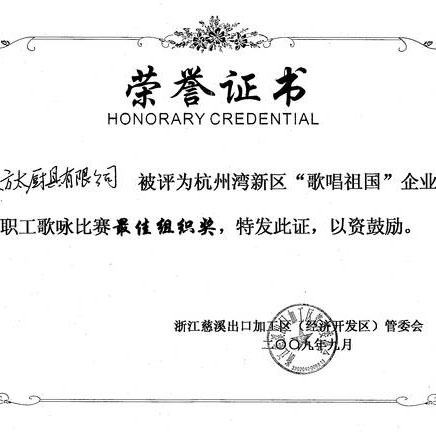 荣誉证书
HONORARY CREDENTIAL
方太厨具有限公司 被评为杭州湾新区“歌唱祖国”企业
职工歌咏比赛最佳组织奖，特发此证，以资鼓励。
浙江慈溪出口加工区（经济开发区）管委会
二〇〇九年九月